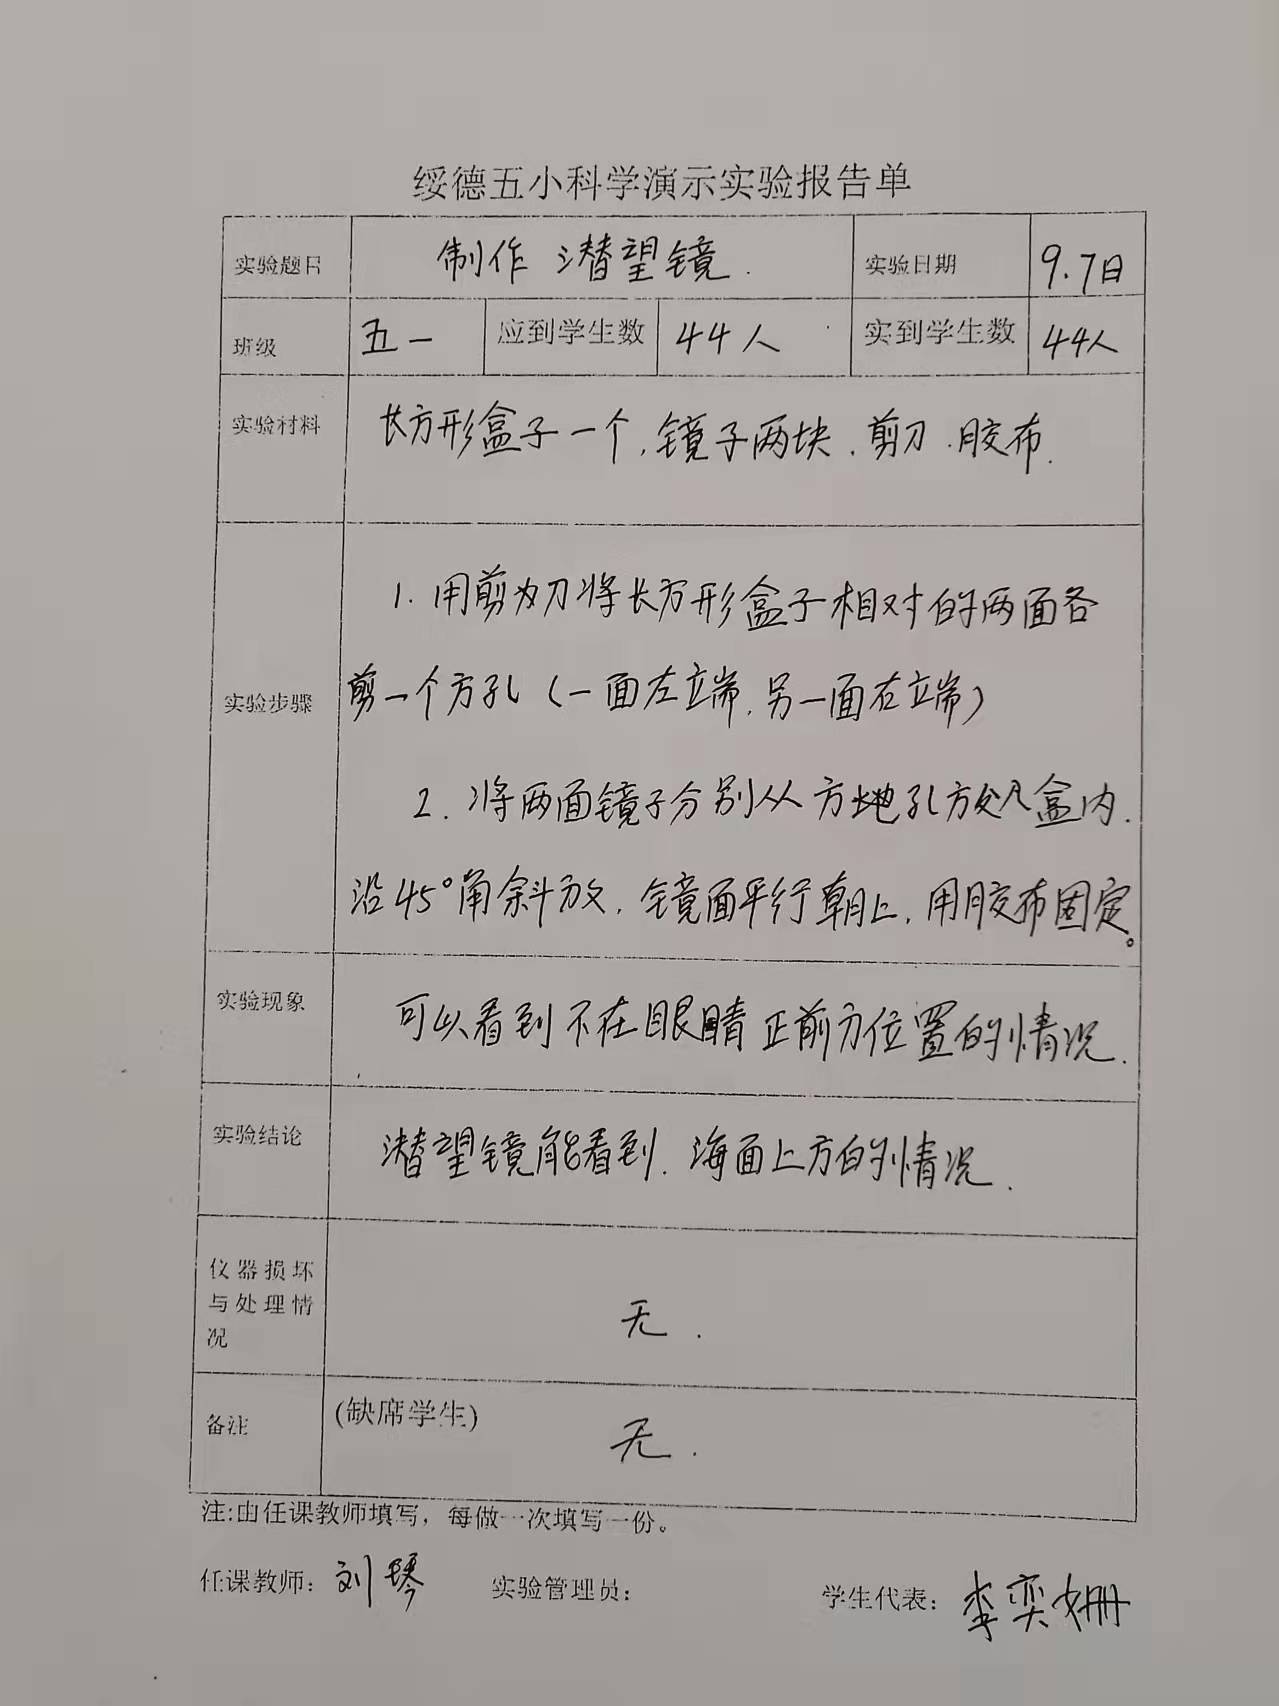 绥德五小科学演示实验报告单
实验题目 制作潜望镜. 实验日期 9.7日
班级 五一 应到学生数 44人 实到学生数 44人
实验材料 长方形盒子一个,镜子两块.剪刀.胶布.
实验步骤
1.用剪刀将长方形盒子相对的两面各
剪一个方孔(一面左端,另一面右端)
2.将两面镜子分别从方孔放入盒内.
沿45°角斜放,镜面平行朝上,用胶布固定。
实验现象 可以看到不在眼睛正前方位置的情况.
实验结论 潜望镜能看到.海面上方的情况.
仪器损坏
与处理情
况
无.
备注 (缺席学生) 无.
注:由任课教师填写,每做一次填写一份。
任课教师:刘琴 实验管理员: 学生代表:李奕姗